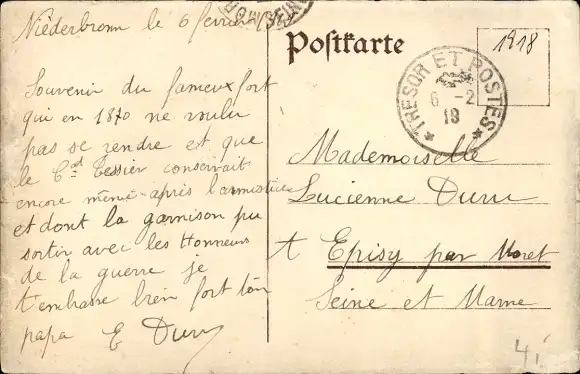 Niederbronn le 6 février
Postkarte
1918
TRESOR ET POSTES
6 -2
18
Souvenir du fameux fort
qui en 1870 ne voulu
pas se rendre et que
le Cdt Tessier conservait
encore même après l'armistice
et dont la garnison pu
sortir avec les Honneurs
de la guerre je
t'embrasse bien fort ton
papa E Duru
Mademoiselle
Lucienne Duru
à Episy par Moret
Seine et Marne
41